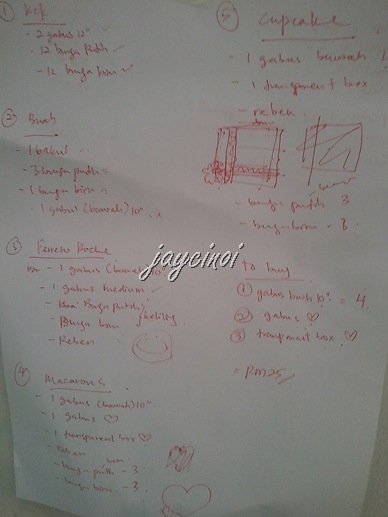 ① Kek
- 2 gabus 12"
- 12 bunga putih
- 12 bunga biru
② Buah
- 1 bakul
- 3 bunga putih
- 1 bunga biru
1 gabus (bawah) 10"
③ Ferrero Roche
- 1 gabus (bawah) 10"
- 1 gabus medium
- Bunga putih
- Bunga biru
- Reben
④ Macarons
- 1 gabus (bawah) 10"
- 1 gabus ♡
- 1 transparent box ♡
- reben
- bunga putih - 3
- bunga biru - 3
⑤ Cupcake
- 1 gabus bawah
- 1 transparent box
- reben
- bunga putih 3
- bunga biru - 3
jaycinoi
To buy
① gabus 10" = 4
② gabus ♡
③ transparent box ♡
= RM25